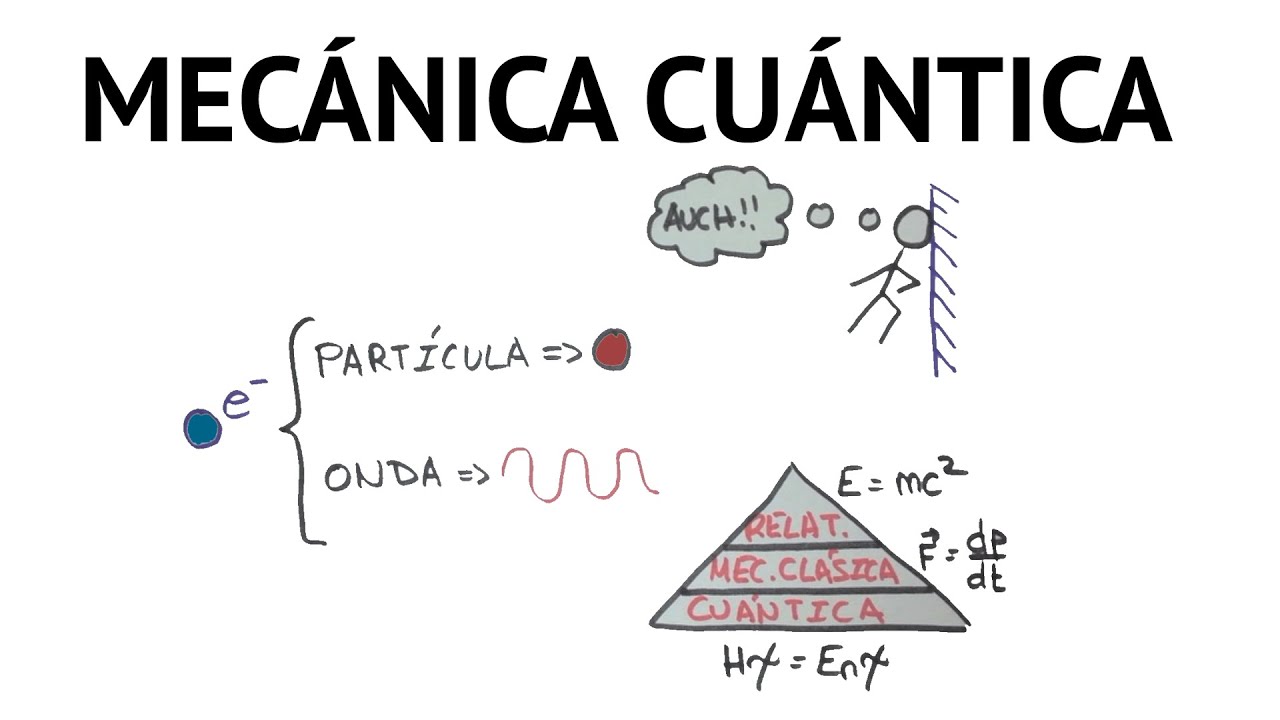 MECÁNICA CUÁNTICA
AUCH!!
PARTÍCULA =>
e⁻
ONDA =>
E = mc²
RELAT.
F⃗ = dp/dt
MEC. CLÁSICA
CUÁNTICA
Hψ = Eₙψ